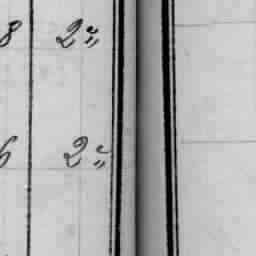 8 2 "
6 2 "